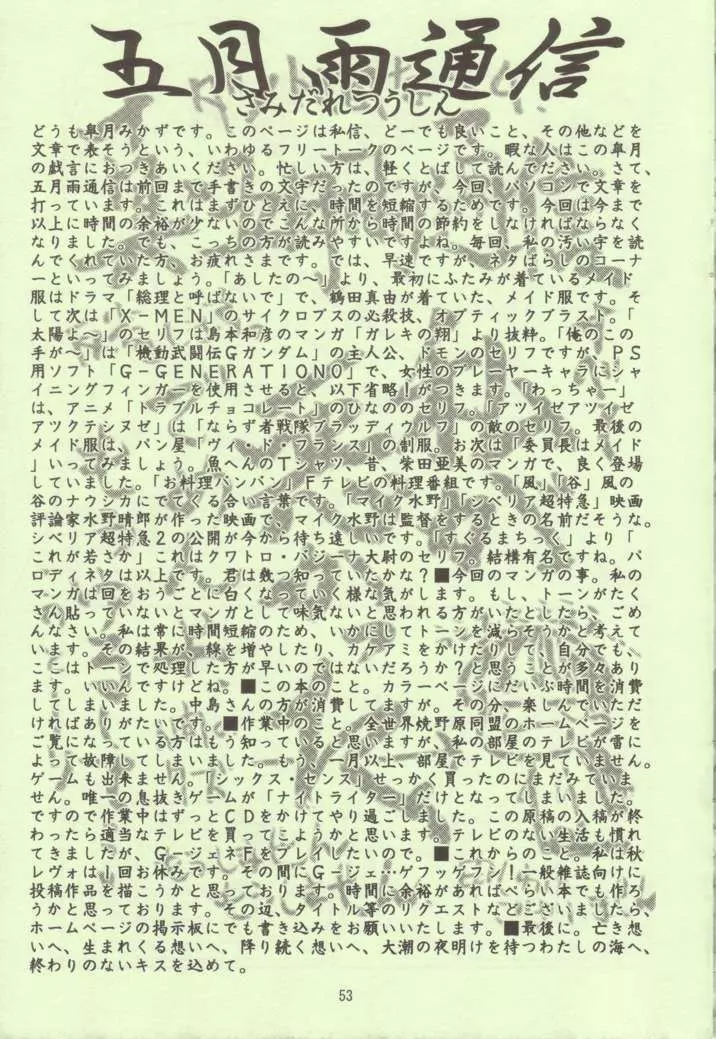 五月雨通信
さみだれつうしん
どうも皐月みかずです。このページは私信、どーでも良いこと、その他などを
文章で表そうという、いわゆるフリートークのページです。暇な人はこの皐月
の戯言におつきあいください。忙しい方は、軽くとばして読んでださい。さて、
五月雨通信は前回まで手書きの文字だったのですが、今回、パソコンで文章を
打っています。これはまずひとえに、時間を短縮するためです。今回は今まで
以上に時間の余裕が少ないのでこんな所から時間の節約をしなければならなく
なりました。でも、こっちの方が読みやすいですよね。毎回、私の汚い字を読
んでくれていた方、お疲れさまです。では、早速ですが、ネタばらしのコーナ
ーといってみましょう。「あしたのへ」より、最初にふたみが着ているメイド
服はドラマ「総理と呼ばないで」で、鶴田真由が着ていた、メイド服です。そ
して次は「X-MEN」のサイクロプスの必殺技、オプティックブラスト。「
太陽よ～」のセリフは島本和彦のマンガ「ガレキの翔」より抜粋。「俺のこの
手が～」は「機動武闘伝Gガンダム」の主人公、ドモンのセリフですが、PS
用ソフト「G-GENERATION0」で、女性のプレーヤーキャラにシャ
イニングフィンガーを使用させると、以下省略!がつきます。「わっちゃー」
は、アニメ「トラブルチョコレート」のひなののセリフ。「アツイゼアツイゼ
アツクテシヌゼ」は「ならず者戦隊ブラッディウルフ」の敵のセリフ。最後の
メイド服は、パン屋「ヴィ・ド・フランス」の制服。お次は「委員長はメイド
」いってみましょう。魚へんのTシャツ、昔、柴田亜美のマンガで、良く登場
していました。「お料理バンバン」Fテレビの料理番組です。「風」「谷」風の
谷のナウシカにでてくる合い言葉です。「マイク水野」「シベリア超特急」映画
評論家水野晴郎が作った映画で、マイク水野は監督をするときの名前だそうな。
シベリア超特急2の公開が今から待ち遠しいです。「すぐるまちっく」より「
これが若さか」これはクワトロ・バジーナ大尉のセリフ。結構有名ですね。パ
ロディネタは以上です。君は幾つ知っていたかな?■今回のマンガの事。私の
マンガは回をおうごとに白くなっていく様な気がします。もし、トーンがたく
さん貼っていないとマンガとして味気ないと思われる方がいたとしたら、ごめ
んなさい。私は常に時間短縮のため、いかにしてトーンを減らそうかと考えて
います。その結果が、線を増やしたり、カケアミをかけたりして、自分でも、
ここはトーンで処理した方が早いのではないだろうか?と思うことが多々あり
ます。いいんですけどね。■この本のこと。カラーページにだいぶ時間を消費
してしまいました。中島さんの方が消費してますが。その分、楽しんでいただ
ければありがたいです。■作業中のこと。全世界焼野原同盟のホームページを
ご覧になっている方はもう知っていると思いますが、私の部屋のテレビが雷に
よって故障してしまいました。もう、一月以上、部屋でテレビを見ていません。
ゲームも出来ません。「シックス・センス」せっかく買ったのにまだみていま
せん。唯一の息抜きゲームが「ナイトライター」だけとなってしまいました。
ですので作業中はずっとCDをかけてやり過ごしました。この原稿の入稿が終
わったら適当なテレビを買ってこようかと思います。テレビのない生活も慣れ
てきましたが、G-ジェネFをプレイしたいので。■これからのこと。私は秋
レヴォは1回お休みです。その間にG-ジェ…ゲフッゲフン!一般雑誌向けに
投稿作品を描こうかと思っております。時間に余裕があればぺらい本でも作ろ
うかと思っております。その辺、タイトル等のリクエストなどございましたら、
ホームページの掲示板にでも書き込みをお願いいたします。■最後に。亡き想
いへ、生まれくる想いへ、降り続く想いへ、大潮の夜明けを待つわたしの海へ、
終わりのないキスを込めて。
53